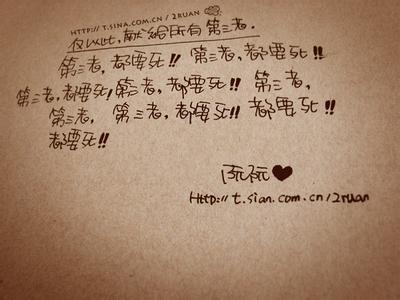 HTTP://T.SINA.COM.CN/2RUAN
仅以此，献給所有第三者.
第三者，都要死!! 第三者，都要死!!
第三者，都要死!第三者，都要死!! 第三者，
第三者， 第三者，都要死!! 都要死!!
都要死!!
阮阮❤
Http://t.sian.com.cn/2ruan